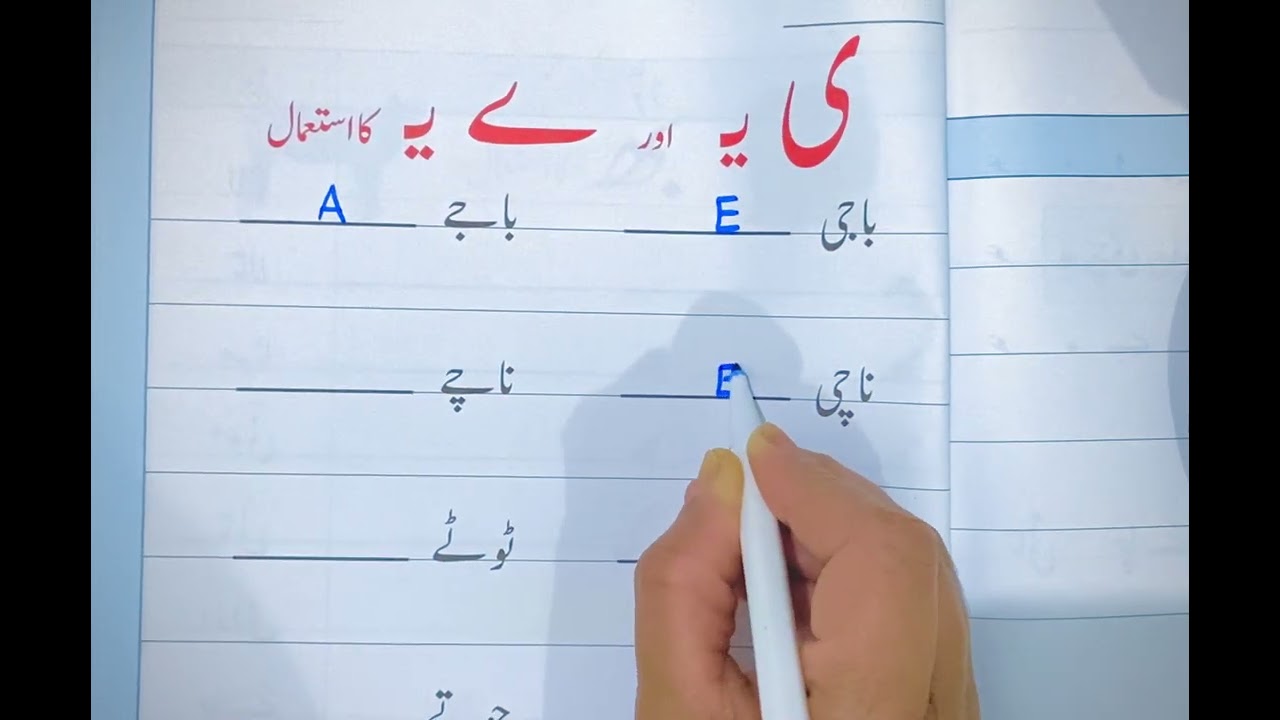 ی یـ اور ے یـ کا استعمال
باجی E باجے A
ناچی E ناچے
ٹوٹے